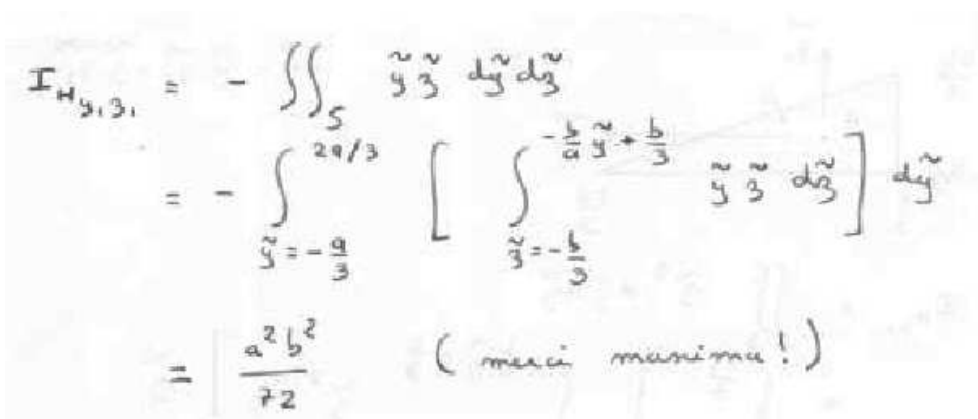 I_{H y₁ z₁} = - ∬_S ỹ z̃ dỹ dz̃
= - ∫_{ỹ = -a/3}^{2a/3} [ ∫_{z̃ = -b/3}^{-b/a ỹ + b/3} ỹ z̃ dz̃ ] dỹ
= a² b² / 72 ( merci maxima ! )